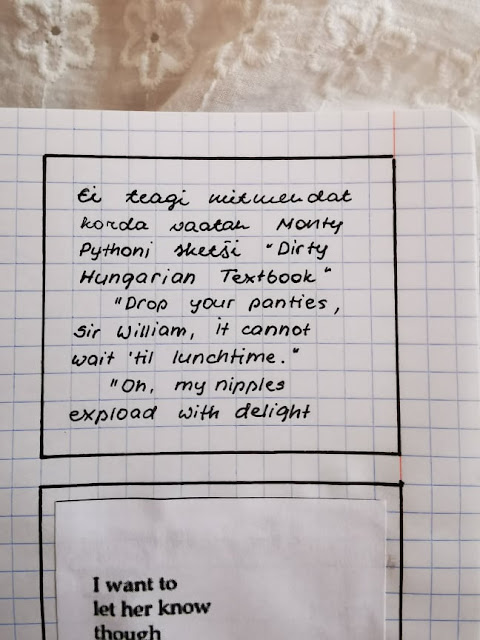 Ei teagi mitmendat
korda vaatan Monty
Pythoni sketši "Dirty
Hungarian Textbook"
"Drop your panties,
Sir William, it cannot
wait 'til lunchtime."
"Oh, my nipples
expload with delight
I want to
let her know
though